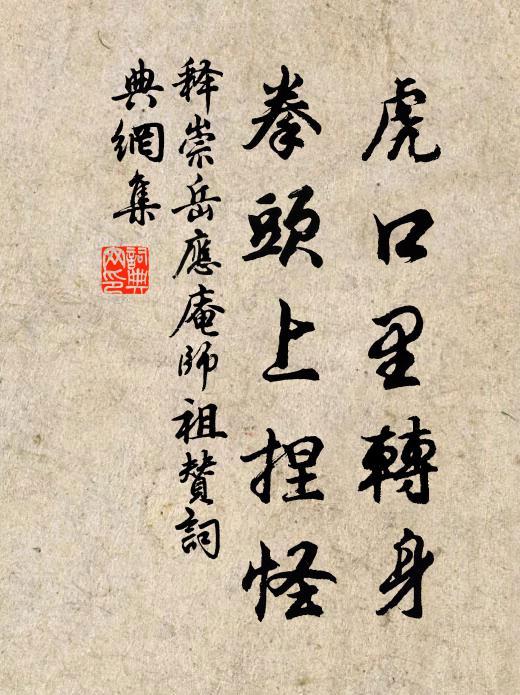 虎口里轉身
拳頭上捏怪
释崇岳應庵師祖贊詞
典網集
詞典